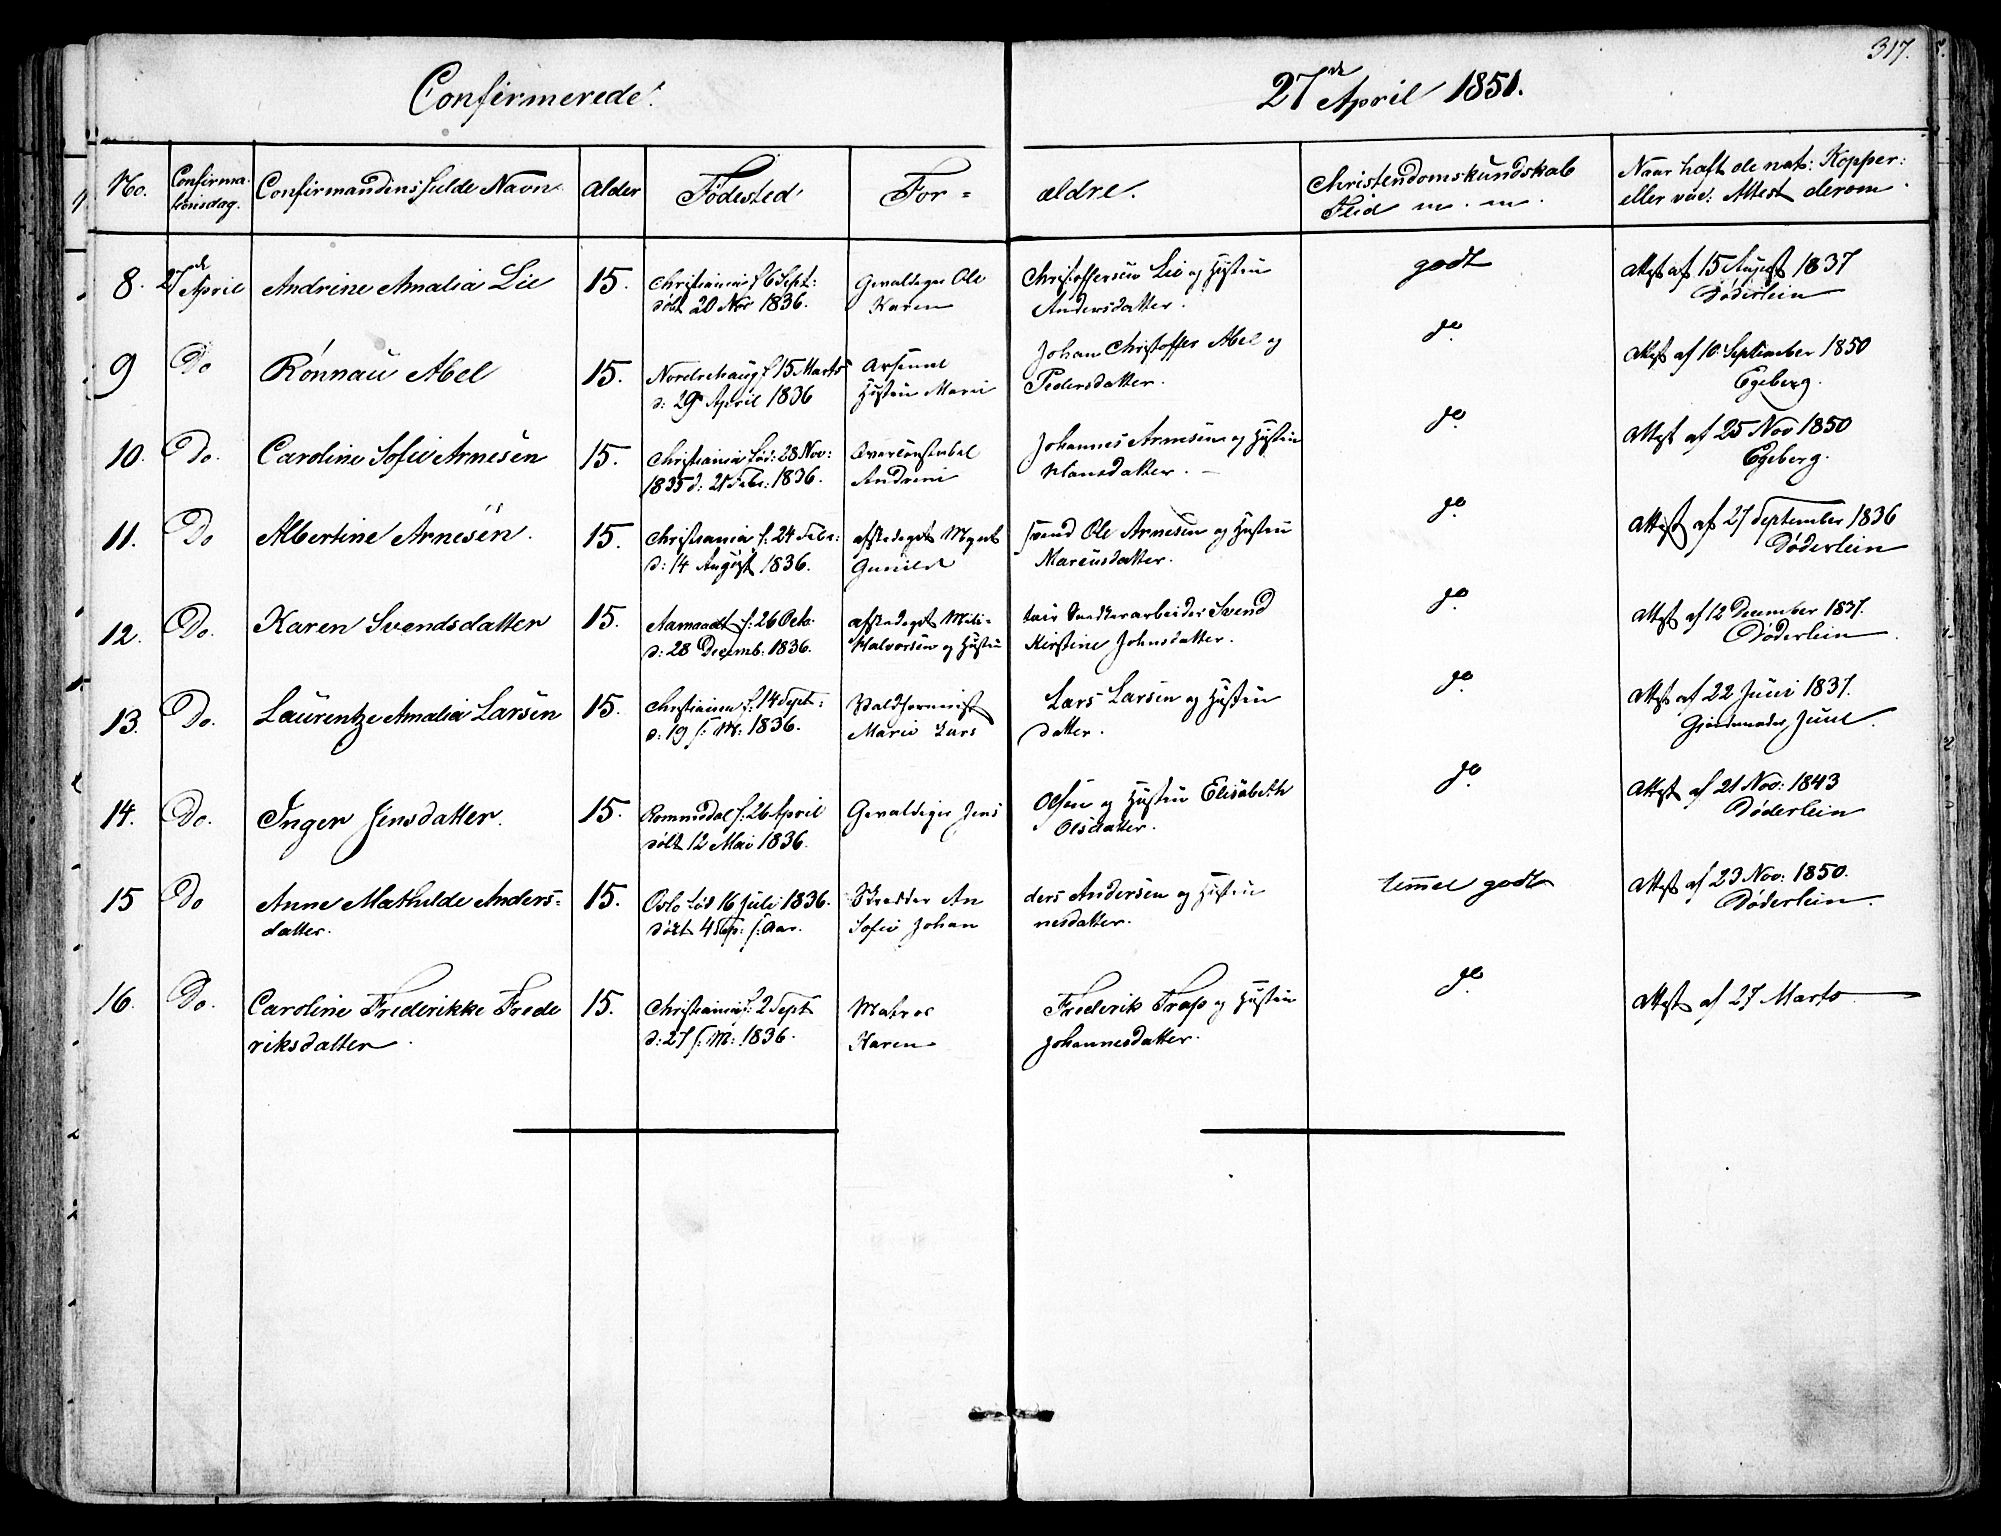 317.
Confirmerede. 27de April 1851.
No. Confirmationsdag. Confirmandens fulde Navn. Alder Fødested For= ældre. Christendomskundskab Flid m. m. Naar haft de nat: Kopper: eller vac: Attest derom.
8. 27de April Andrine Amalia Lie 15. Christiania f 6 Sept: Gevaldiger Ole Christoffersen Lie og Hustru godt Attest af 15 August 1837
døbt 20 Nov 1836. Karen Andersdatter. Døderlein
9 Do Rønnau Abel 15. Norderhaug f 15 Marts Arsenal Johan Christoffer Abel og do. Attest af 10 September 1850
d: 29 April 1836 Hustru Marie Pedersdatter. Egeberg.
10. Do. Caroline Sofie Arnesen 15. Christiania fød: 28 Nov: Overconstabel Johannes Arnesen og Hustru do. Attest af 25 Nov 1850
1835 d: 21 Febr: 1836. Andrine Hansdatter. Egeberg.
11. Do Albertine Arnesen. 15. Christiania f: 24 Febr: afskediget Svend Ole Arnesen og Hustru do. Attest af 27 September 1836
d: 14 August 1836. Gunild Marcusdatter. Døderlein
12. Do. Karen Svendsdatter 15. Aamodt f: 26 Octb. afskediget Mili= tair Svend do. Attest af 12 December 1837.
d: 28 Decemb: 1836. Halvorsen og Hustru Kirstine Johnsdatter. Døderlein.
13. Do. Laurentze Amalia Larsen 15. Christiania f. 14 Sept: Lars Larsen og Hustru do. Attest af 22 Juni 1837.
d: 19 s: M: 1836. Marie Lars datter.
14. Do. Inger Jensdatter. 15. Romsdal f: 26 April Gevaldiger Jens Olsen og Hustru Elisabeth do. Attest af 21 Nov: 1843
døbt 12 Mai 1836. Olsdatter. Døderlein
15 Do Anne Mathilde Anders= 15. Oslo fød 16 Juli 1836. Skrædder An ders Andersen og Hustru temmel godt Attest af 23 Nov: 1850.
datter. døbt 4 Sep: s: Aar. Sofie Johan nesdatter. Døderlein.
16. Do. Caroline Frederikke Frede 15. Christiania f: 2 Sept Matros Frederik Trap og Hustru do. Attest af 27 Marts
riksdatter. d: 27 s: M: 1836. Karen Johannesdatter.